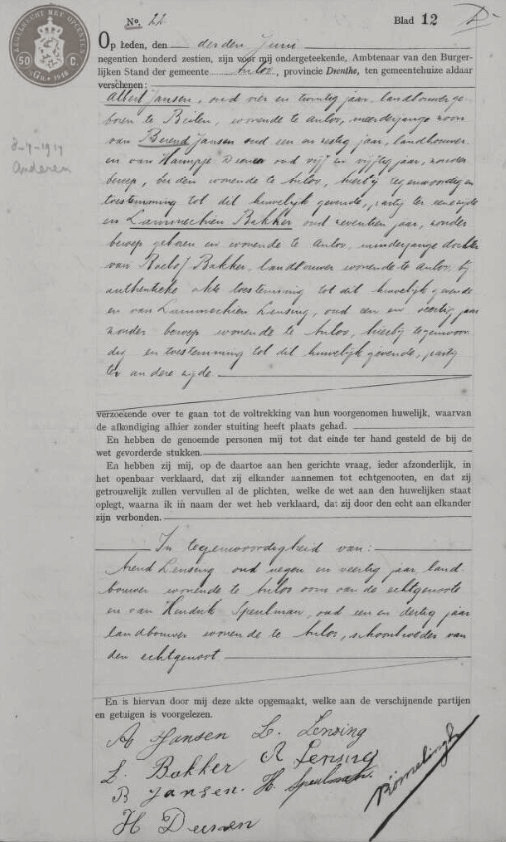 No. 22
Blad 12
50 C.
Op heden, den derden Juni
negentien honderd zestien, zijn voor mij ondergeteekende, Ambtenaar van den Burger-
lijken Stand der gemeente Anloo, provincie Drenthe, ten gemeentehuize aldaar
verschenen:
Albert Jansen, oud vier en twintig jaar, landbouwer ge-
boren te Beilen, wonende te Anloo, meerderjarige zoon
van Berend Jansen oud een en zestig jaar, landbouwer
en van Hampje Deenen oud vijf en vijftig jaar, zonder
beroep, beiden wonende te Anloo, hierbij tegenwoordig en
toestemming tot dit huwelijk gevende, partij ter eenre zijde
en Lammechien Bakker oud zeventien jaar, zonder
beroep geboren en wonende te Anloo, minderjarige dochter
van Roelof Bakker, landbouwer wonende te Anloo, bij
authentieke akte toestemming tot dit huwelijk gevende
en van Lammechien Lensing, oud een en veertig jaar
zonder beroep wonende te Anloo, hierbij tegenwoor-
dig en toestemming tot dit huwelijk gevende, partij
ter andere zijde
8-9-1919
Anderen
verzoekende over te gaan tot de voltrekking van hun voorgenomen huwelijk, waarvan
de afkondiging alhier zonder stuiting heeft plaats gehad.
En hebben de genoemde personen mij tot dat einde ter hand gesteld de bij de
wet gevorderde stukken.
En hebben zij mij, op de daartoe aan hen gerichte vraag, ieder afzonderlijk, in
het openbaar verklaard, dat zij elkander aannemen tot echtgenooten, en dat zij
getrouwelijk zullen vervullen al de plichten, welke de wet aan den huwelijken staat
oplegt, waarna ik in naam der wet heb verklaard, dat zij door den echt aan elkander
zijn verbonden.
In tegenwoordigheid van:
Arend Lensing oud negen en veertig jaar land-
bouwer wonende te Anloo oom van de echtgenoote
en van Hendrik Speulman, oud een en dertig jaar
landbouwer wonende te Anloo, schoonbroeder van
den echtgenoot
En is hiervan door mij deze akte opgemaakt, welke aan de verschijnende partijen
en getuigen is voorgelezen.
A Jansen L. Lensing
L. Bakker A Lensing
B Jansen. H. Speulman
H Deenen